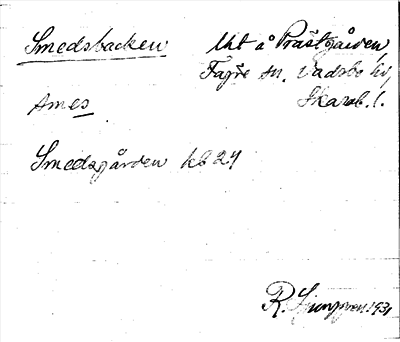 Smedsbacken Uht å Prästgården,
Fägre sn. Vadsbo hd,
Ames Skarab. l.
Smedsgården kb 24
R. Ljunggren 1931